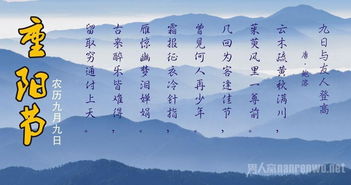 九日与友人登高
唐：鲍溶
云木疏黄秋满川，
茱萸风里一尊前。
几回为客逢佳节，
曾见何人再少年。
霜报征衣冷针指，
雁惊幽梦泪婵娟。
古来醉乐皆难得，
留取穷通付上天。
农历九月九日
重阳节
男人窝nanrenwo.net